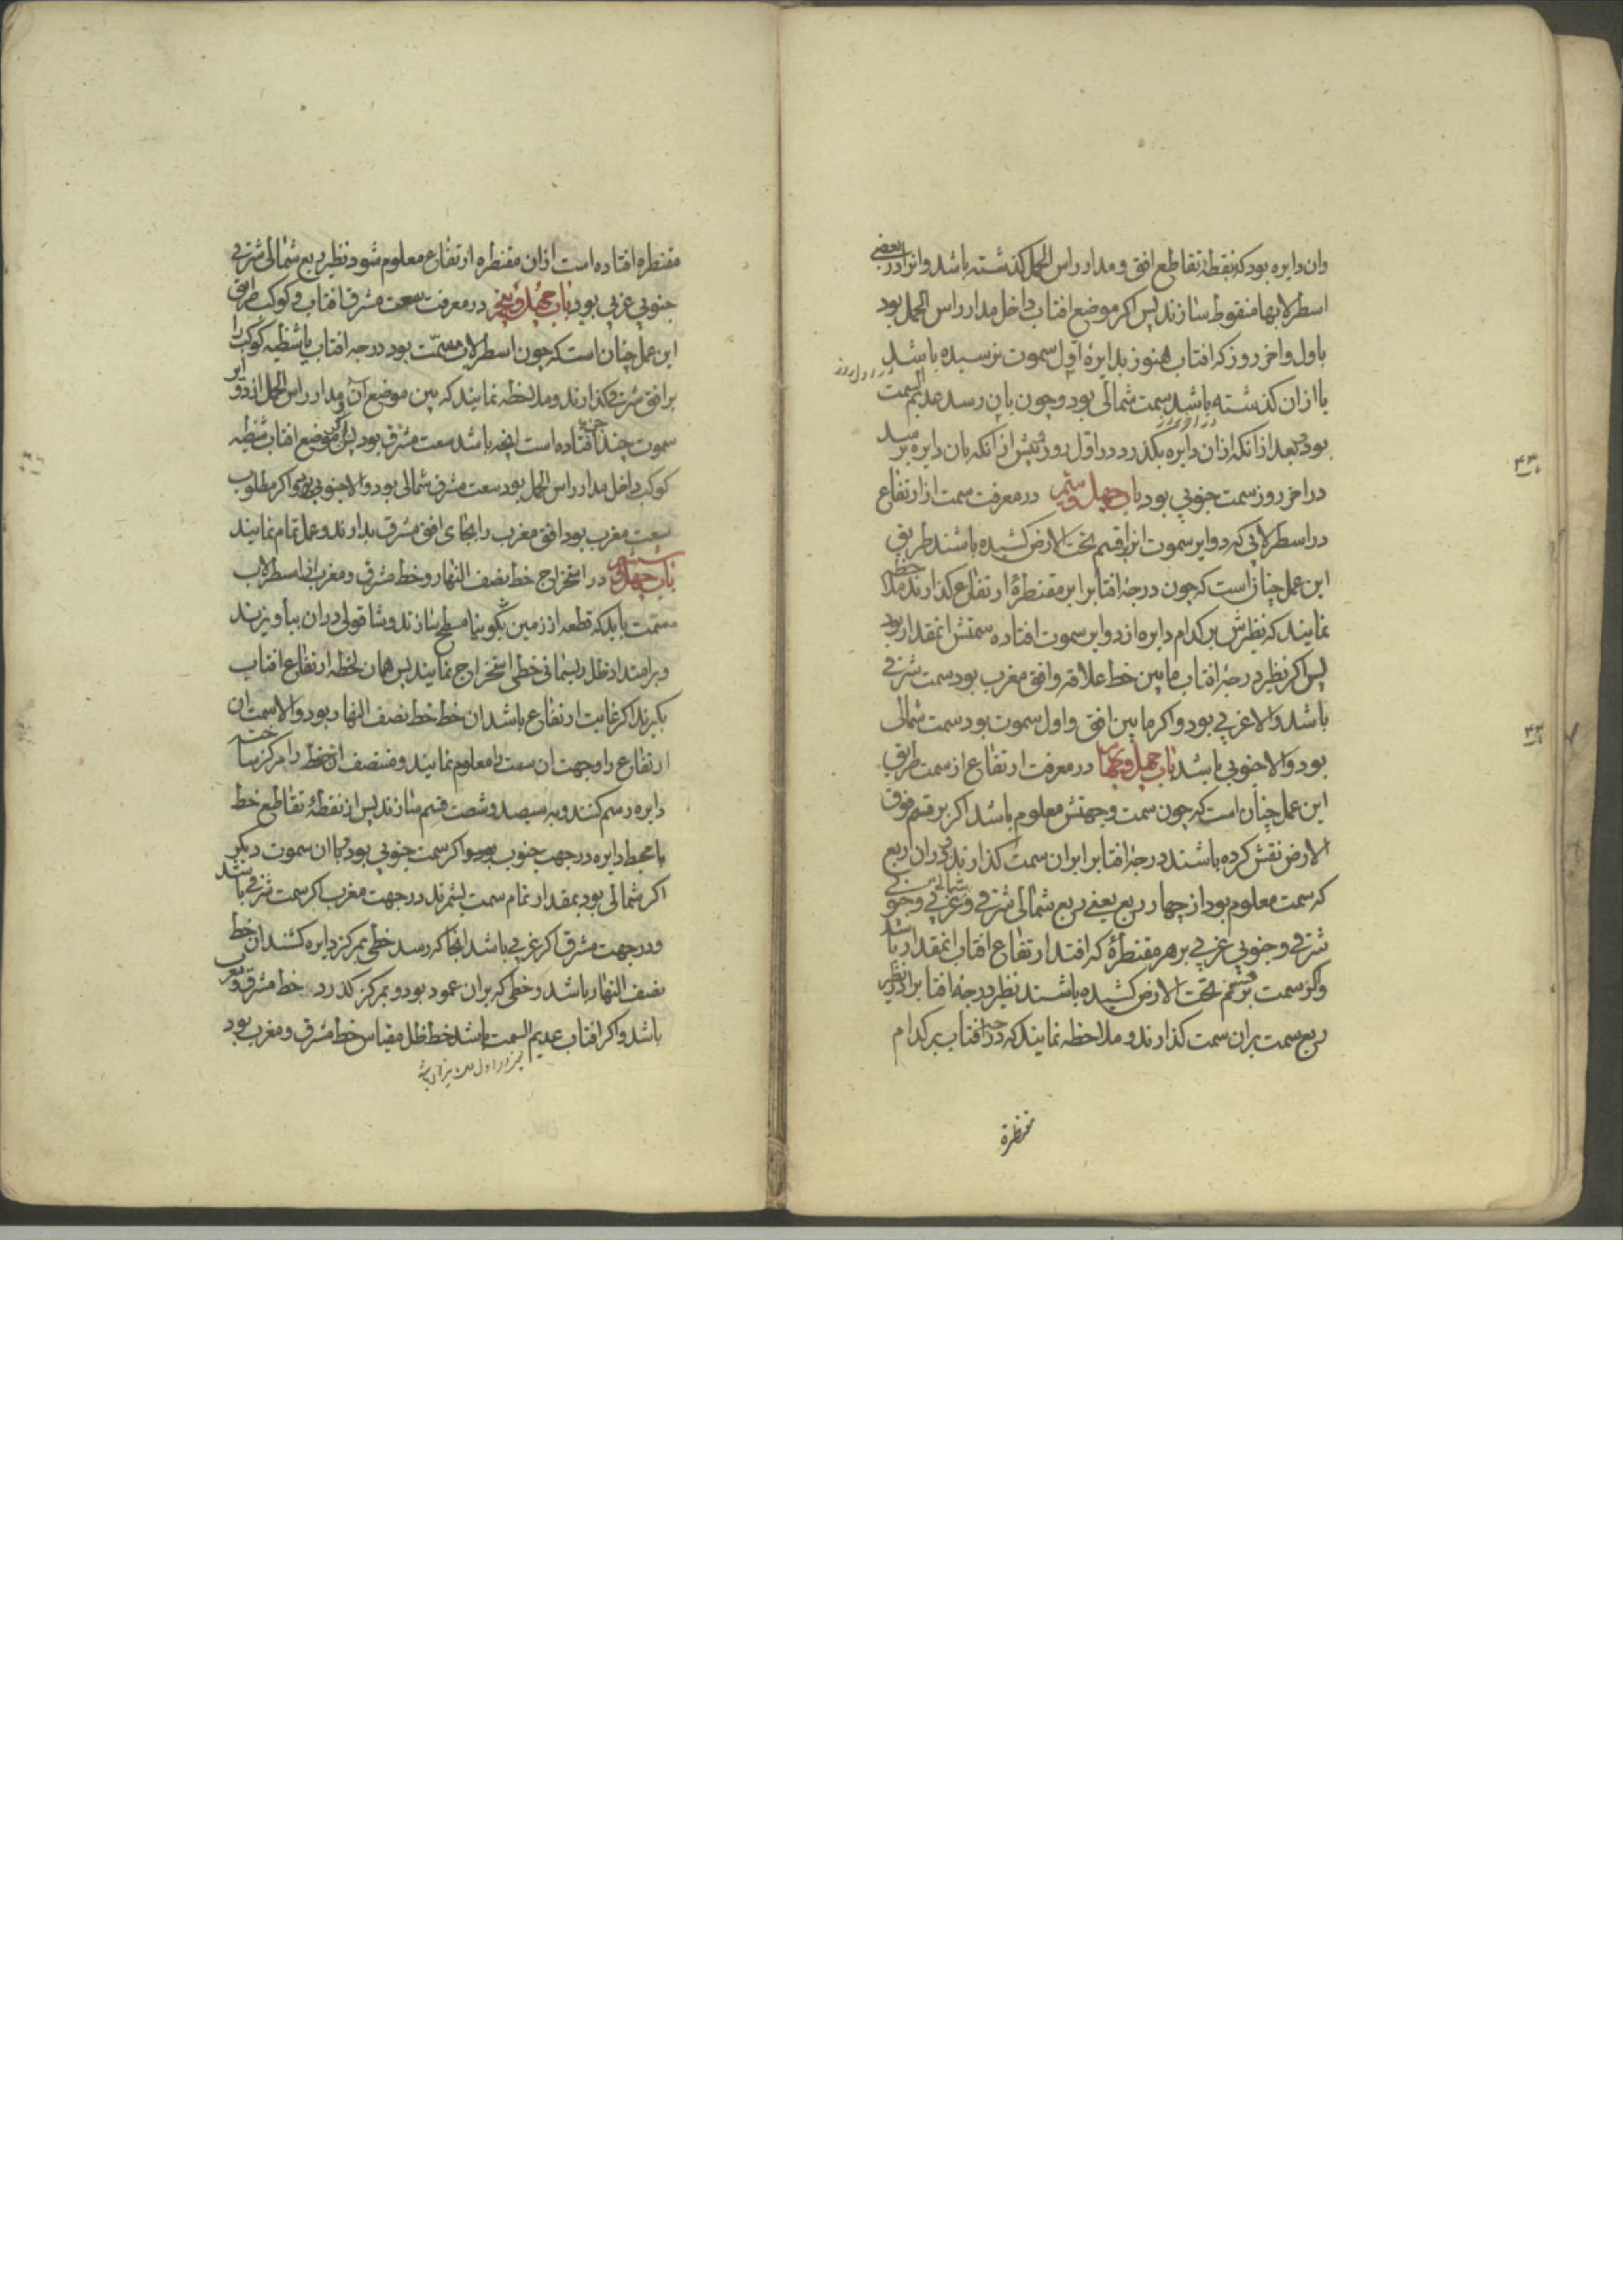 وان دایره بود که بنقطهٔ تقاطع افق و مدار راس الحمل کذشته باشد وانرا در بعضی
اسطرلابها منقوط سازند پس اکر موضع افتاب داخل مدار راس الحمل بود
باول واخر روز که افتاب هنوز بدایرهٔ اول سموت نرسیده باشد
در اول روز
یا ازان کذشته باشد سمت شمالی بود و چون بان رسد عدیم السمت
در اخر روز
بود و بعد از انکه ازان دایره بکذرد در اول روز و پیش از انکه بان دایره رسد
در اخر روز سمت جنوبی بود باب چهل و سیّم در معرفت سمت از ارتفاع
در اسطرلابی که دوایر سموت انرا بقسم تحت الارض کشیده باشند طریق
این عمل چنانست که چون درجهٔ افتاب را بر مقنطرهٔ ارتفاع کذارند ملاحظه
نمایند که نظیرش بر کدام دایره از دوایر سموت افتاده سمتش انمقدار بود
پس اکر نظیر درجهٔ افتاب مابین خط علاقه وافق مغرب بود سمت شرقی
باشد والا غربی بود واکر مابین افق واول سموت بود سمت شمالی
بود والا جنوبی باشد باب چهل و چهارم در معرفت ارتفاع از سمت طریق
این عمل چنان است که چون سمت وجهتش معلوم باشد اکر بر قسم فوق
الارض نقش کرده باشند درجهٔ افتاب را بران سمت کذارند دران ربع
که سمت معلوم بود از چهار ربع یعنی ربع شمالی شرقی و شمالی غربی و جنوبی
شرقی و جنوبی غربی بر هر مقنطرهٔ که افتد ارتفاع افتاب انمقدار باشد
واکر سمت بر قسم تحت الارض کشیده باشند نظیر درجهٔ افتاب را در نظیر
ربع سمت بران سمت کذارند و ملاحظه نمایند که درجهٔ افتاب بر کدام
مقنطرة
۴۳
۴۴
مقنطره افتاده است ازان مقنطره ارتفاع معلوم شود نظیر ربع شمالی شرقی
جنوبی غربی بود باب چهل و پنجم در معرفت سعت مشرق افتاب و کوکب طریق
این عمل چنان است که چون اسطرلاب مسمّت بود درجه افتاب یا شظیه کوکب را
بر افق مشرق کذارند و ملاحظه نمایند که بین موضع آن و مدار راس الحمل از دوایر
سموت چند جزء افتاده است انچه باشد سعت مشرق بود پس اکر موضع افتاب شظیه
کوکب داخل مدار راس الحمل بود سعت مشرق شمالی بود والا جنوبی بود واکر مطلوب
سعت مغرب بود افق مغرب را بجای افق مشرق بدارند و عمل تمام نمایند
باب چهل و ششم در استخراج خط نصف النهار و خط مشرق و مغرب از اسطرلاب
مسمّت باید که قطعه از زمین بکونیا مسطح سازند و شاقولی دران بیاویزند
وبر امتداد ظل ریسمانی خطی استخراج نمایند پس همان لحظه ارتفاع افتاب
بکیرند اکر غایت ارتفاع باشد ان خط خط نصف النهار بود والا سمت ان
ارتفاع را و جهت ان سمت را معلوم نمایند و منتصف ان خط را مرکز ساخته
دایره رسم کنند و به سیصد و شصت قسم سازند پس از نقطهٔ تقاطع خط
با محیط دایره در جهت جنوب بود اکر سمت جنوبی بود و یا ان سموت دیکر
اکر شمالی بود بمقدار تمام سمت بشمرند در جهت مغرب اکر سمت شرقی باشد
ودر جهت مشرق اکر غربی باشد انجا که رسد خطی بمرکز دایره کشند ان خط
نصف النهار باشد و خطی که بران عمود بود و بمرکز کذرد خط مشرق و مغرب
باشد واکر افتاب عدیم السمت باشد خط ظل مقیاس خط مشرق و مغرب بود